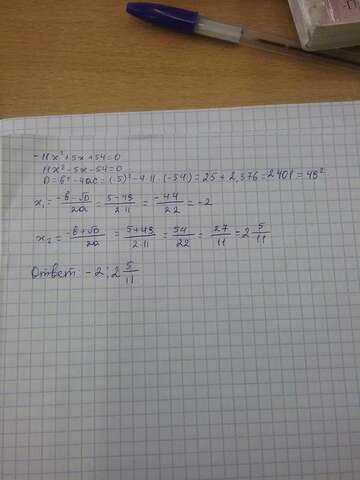 -11x²+5x+54=0
11x²-5x-54=0
D=b²-4ac=(-5)²-4·11·(-54)=25+2,376=2401=49²
x₁=(-b-√D)/2a=(5-49)/(2·11)=(-44)/22=-2
x₂=(-b+√D)/2a=(5+49)/(2·11)=54/22=27/11=2 5/11
Ответ -2; 2 5/11